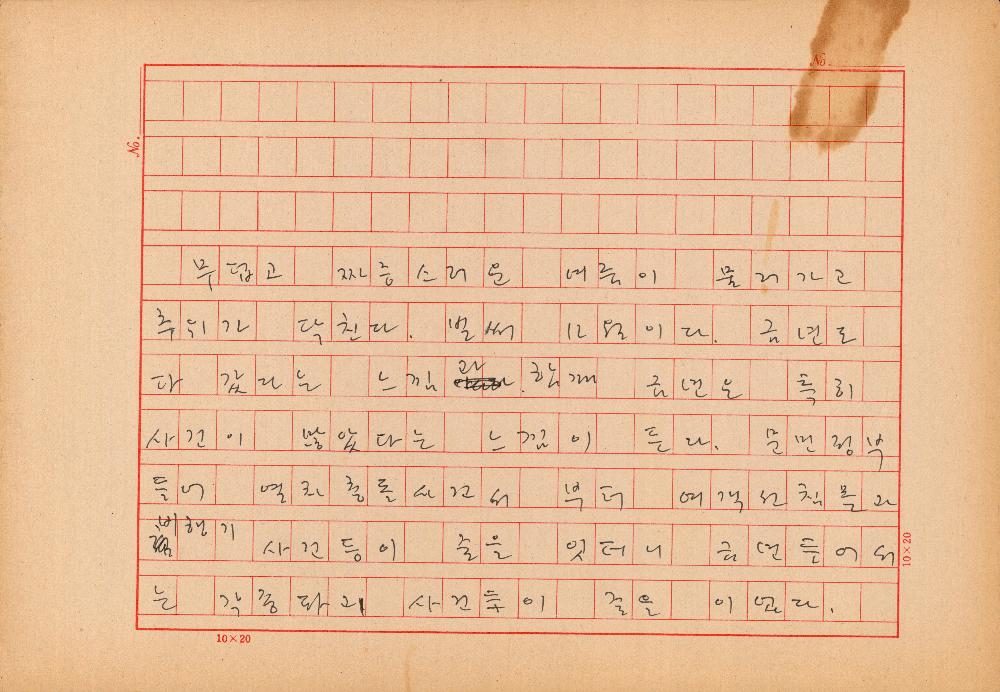 No.
No.
무덥고 짜증스러운 여름이 물러가고
추위가 닥친다. 벌써 12월이다. 금년도
다 갔다는 느낌과 함께 금년은 특히
사건이 많았다는 느낌이 든다. 문민정부
들어 열차충돌사건서 부터 여객선침몰과
비행기 사건등이 줄을 잇더니 금년들어서
는 각종파괴 사건들이 줄을 이었다.
10×20
10×20